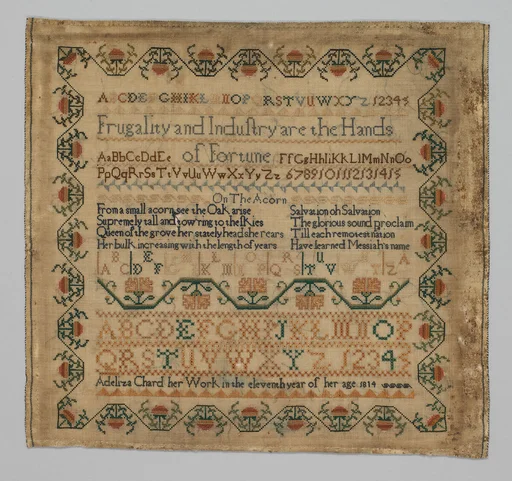 ABCDEFGHIKLMNOPQRSTUVWXYZ 12345
Frugality and Induſtry are the Hands
AaBbCcDdEe of Fortune FfGgHhIiKkLlMmNnOo
PpQqRrSsTtVvUuWwXxYyZz 6789101112131415
On The Acorn
From a small acorn see the Oak arise Salvation oh Salvation
Supremely tall and tow'ring to the ſkies The glorious sound proclaim
Queen of the grove her stately head she rears Till each remotest nation
Her bulk increasing with the length of years Have learned Messiah's name
ABCDEFGHIJKLMNOP
QRSTUVWXYZ 1234
Adeliza Chard her Work in the eleventh year of her age 1814